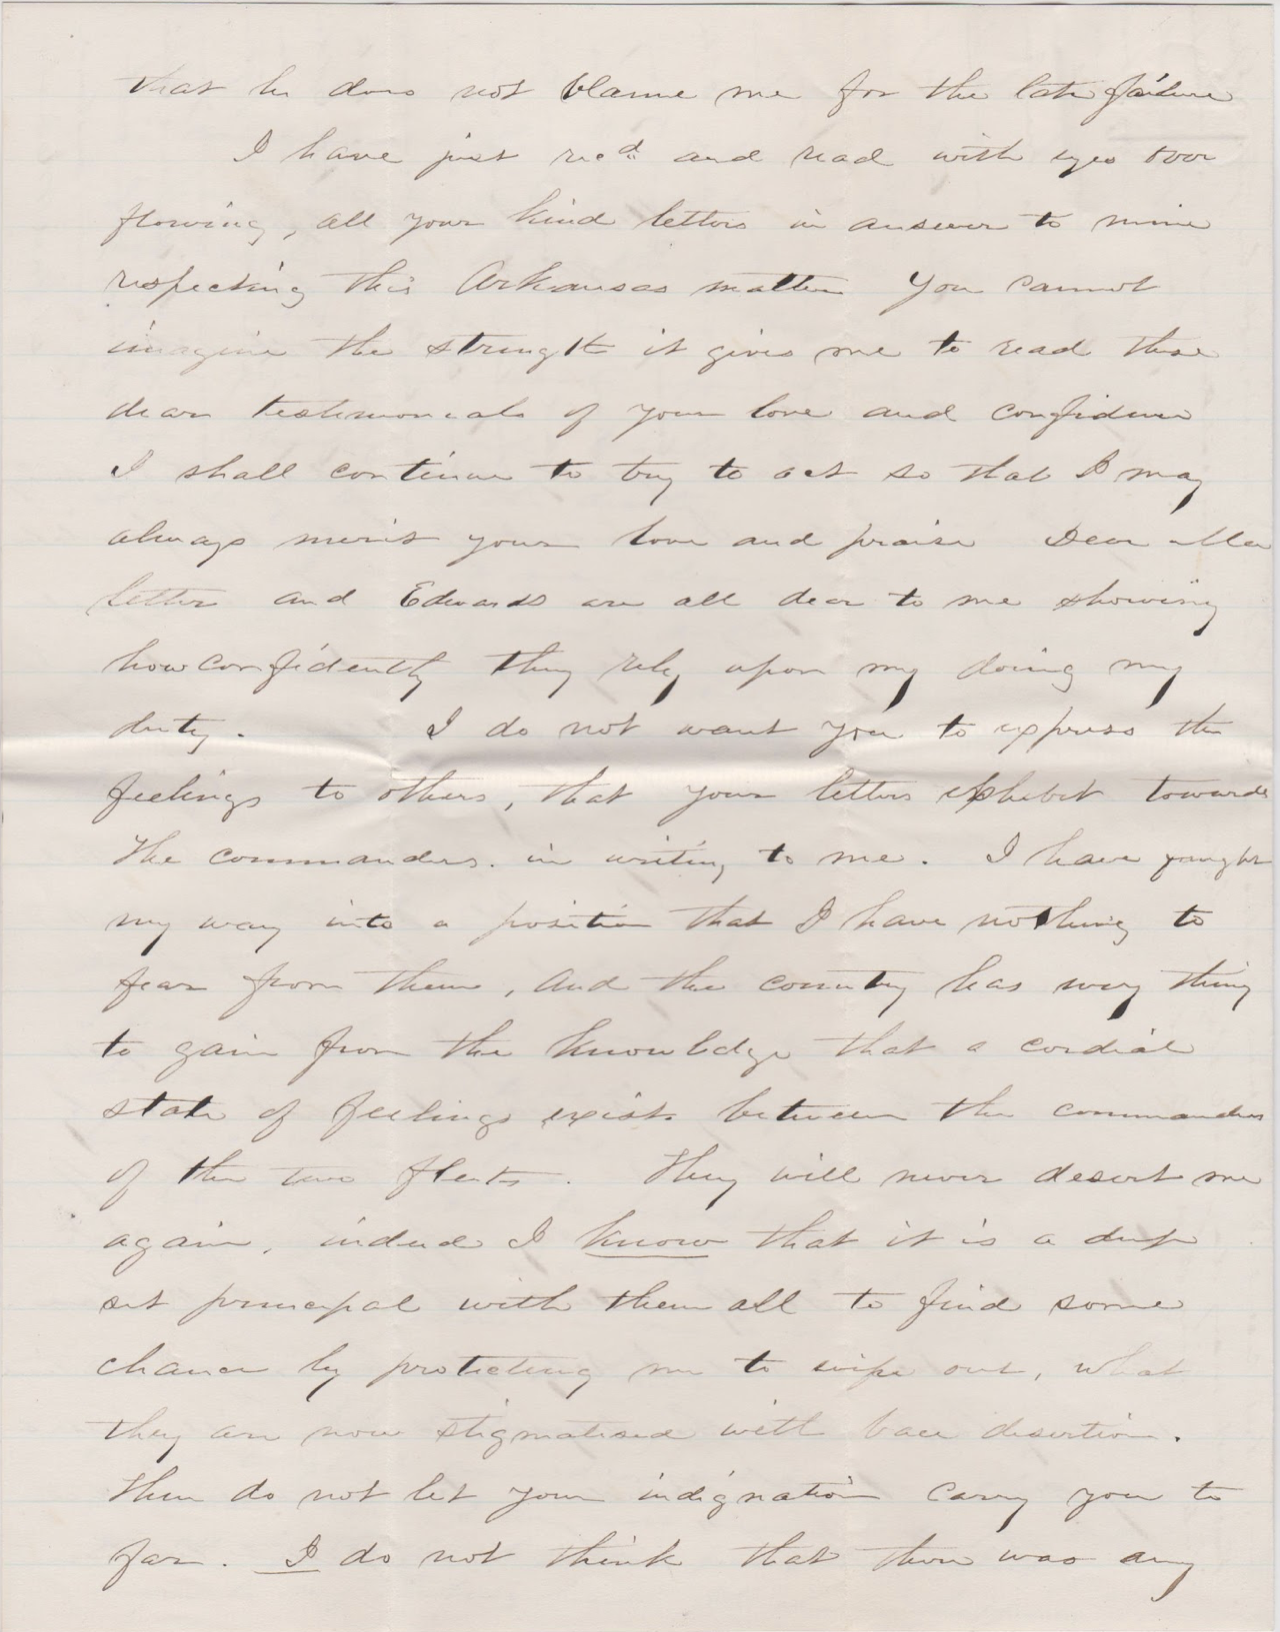 that he does not blame me for the late failure
I have just recd and read with eyes over
flowing, all your kind letters in answer to mine
respecting this Arkansas matter You cannot
imagine the strength it gives me to read these
dear testimonials of your love and confidence
I shall continue to try to act so that I may
always merit your love and praise Dear Ma
letter and Edwards are all dear to me showing
how confidently they rely upon my doing my
duty. I do not want you to express the
feelings to others, that your letters exhibit towards
the commanders. in writing to me. I have fought
my way into a position that I have nothing to
fear from them, and the country has every thing
to gain from the knowledge that a cordial
state of feelings exists between the commanders
of the two fleets. They will never desert me
again, indeed I know that it is a deep
set principal with them all to find some
chance by protecting me to wipe out, what
they are now stigmatised with base desertion.
Then do not let your indignation carry you to
far. I do not think that there was any